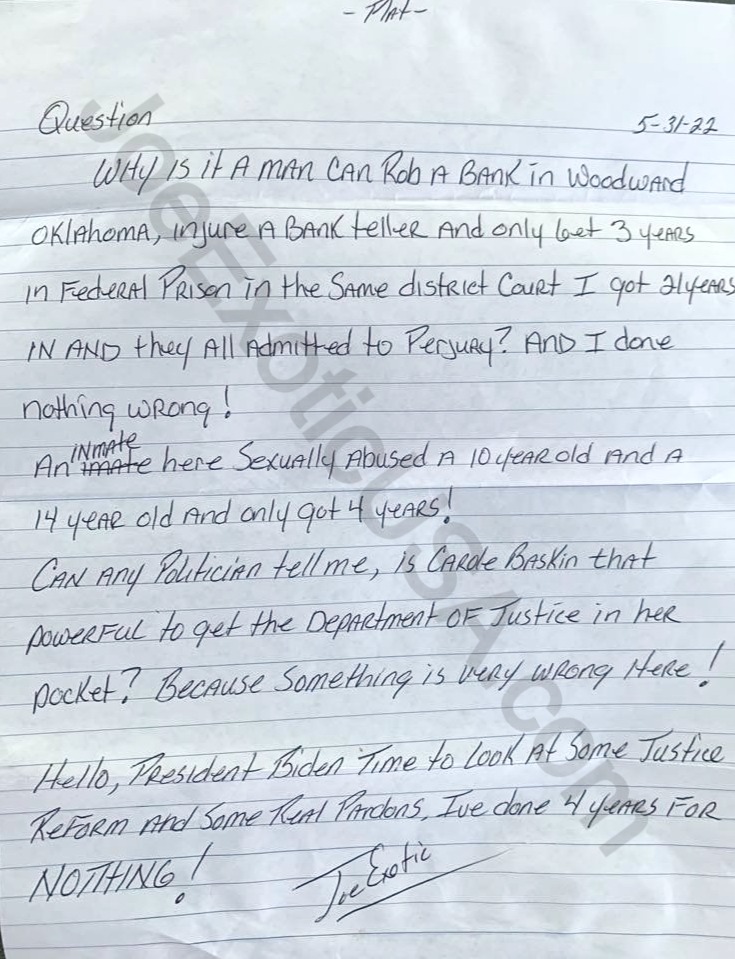 - Plat -
Question 5-31-22
WHY IS it A MAN CAN Rob A BANK in Woodward
OKlAhomA, injure A BANK teller And only Get 3 years
in Federal Prison in the Same district Court I got 21 years
IN AND they All Admitted to Perjury? AND I done
nothing wrong!
An imate INmate here Sexually Abused A 10 year old And A
14 year old And only got 4 years!
CAN Any Politician tell me, is Carole Baskin that
powerful to get the Department OF Justice in her
pocket? Because Something is very wrong Here!
Hello, President Biden Time to look At Some Justice
Reform And Some Real Pardons, Ive done 4 years FOR
NOTHING!
Joe Exotic
JoeExoticUSA.com